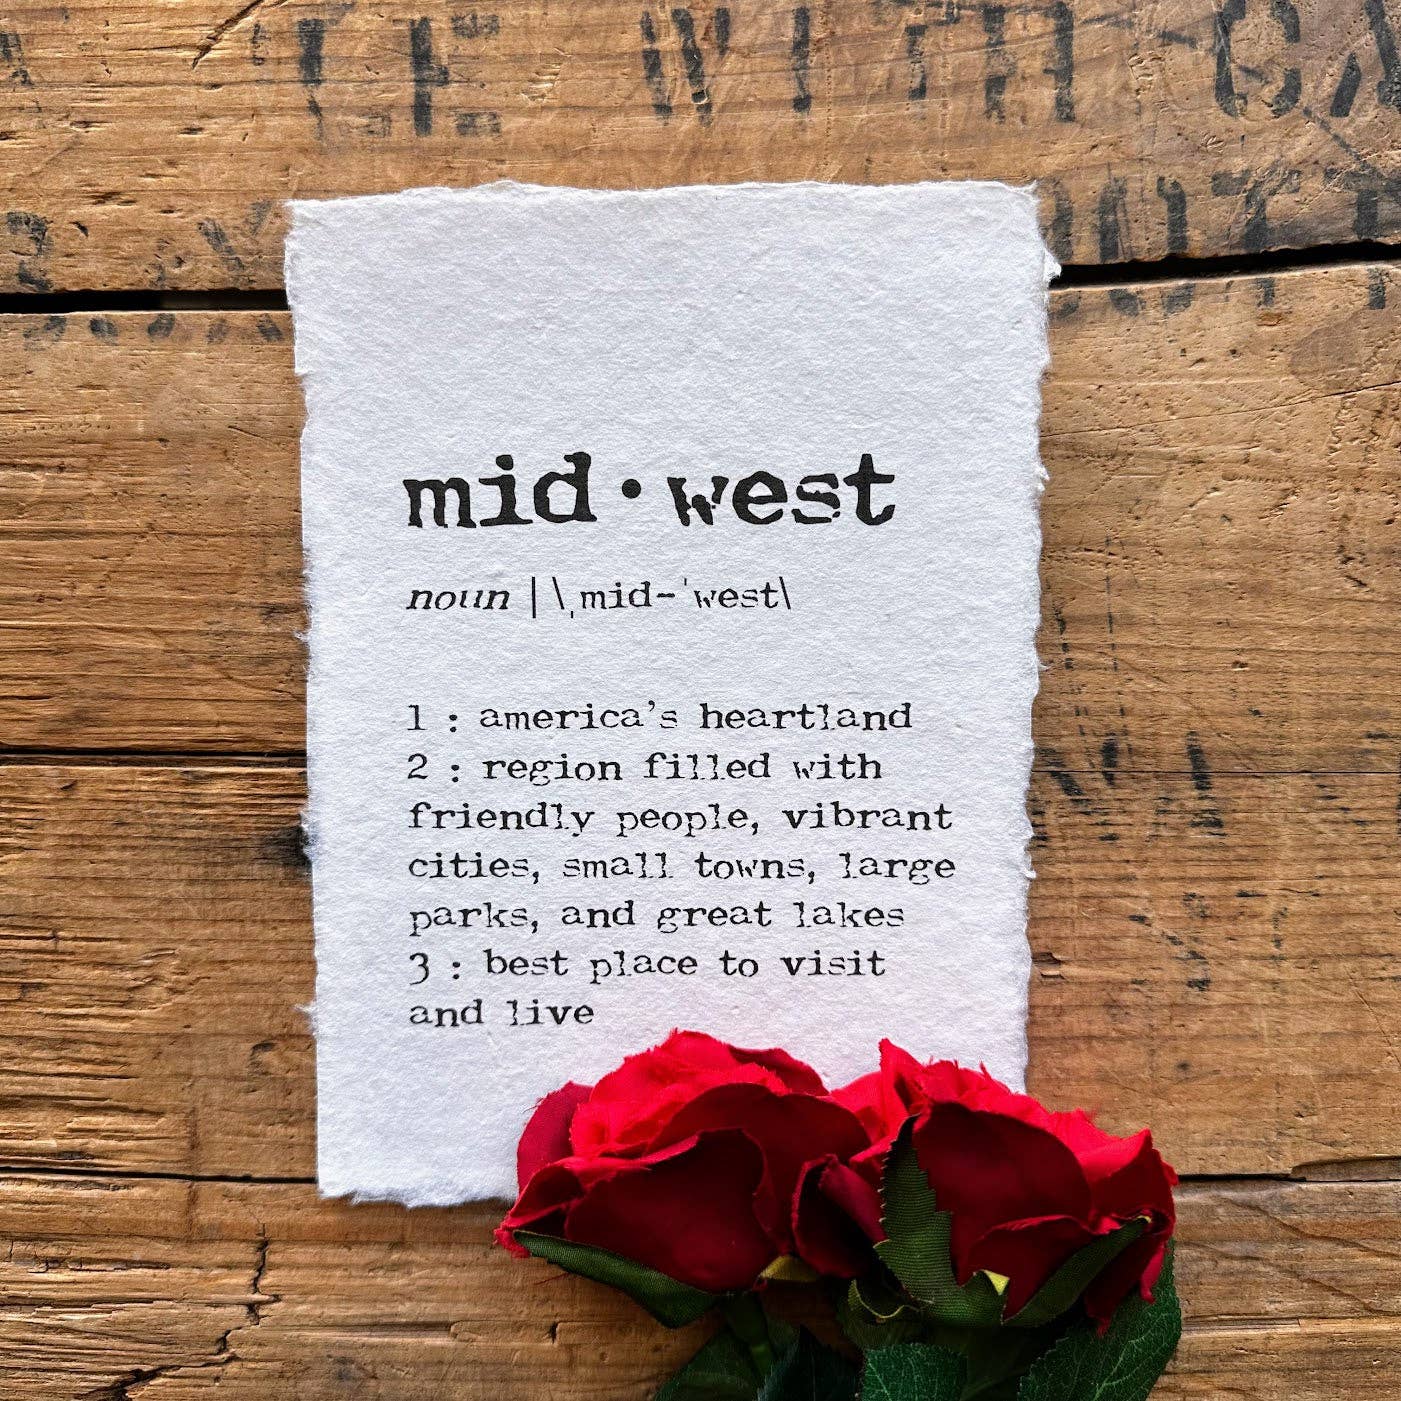 TE WITH CA
mid•west
noun | \ˌmid-ˈwest\
1 : america's heartland
2 : region filled with
friendly people, vibrant
cities, small towns, large
parks, and great lakes
3 : best place to visit
and live